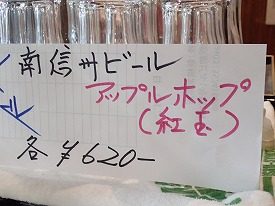 南信州ビール
アップルホップ
(紅玉)
各¥620-